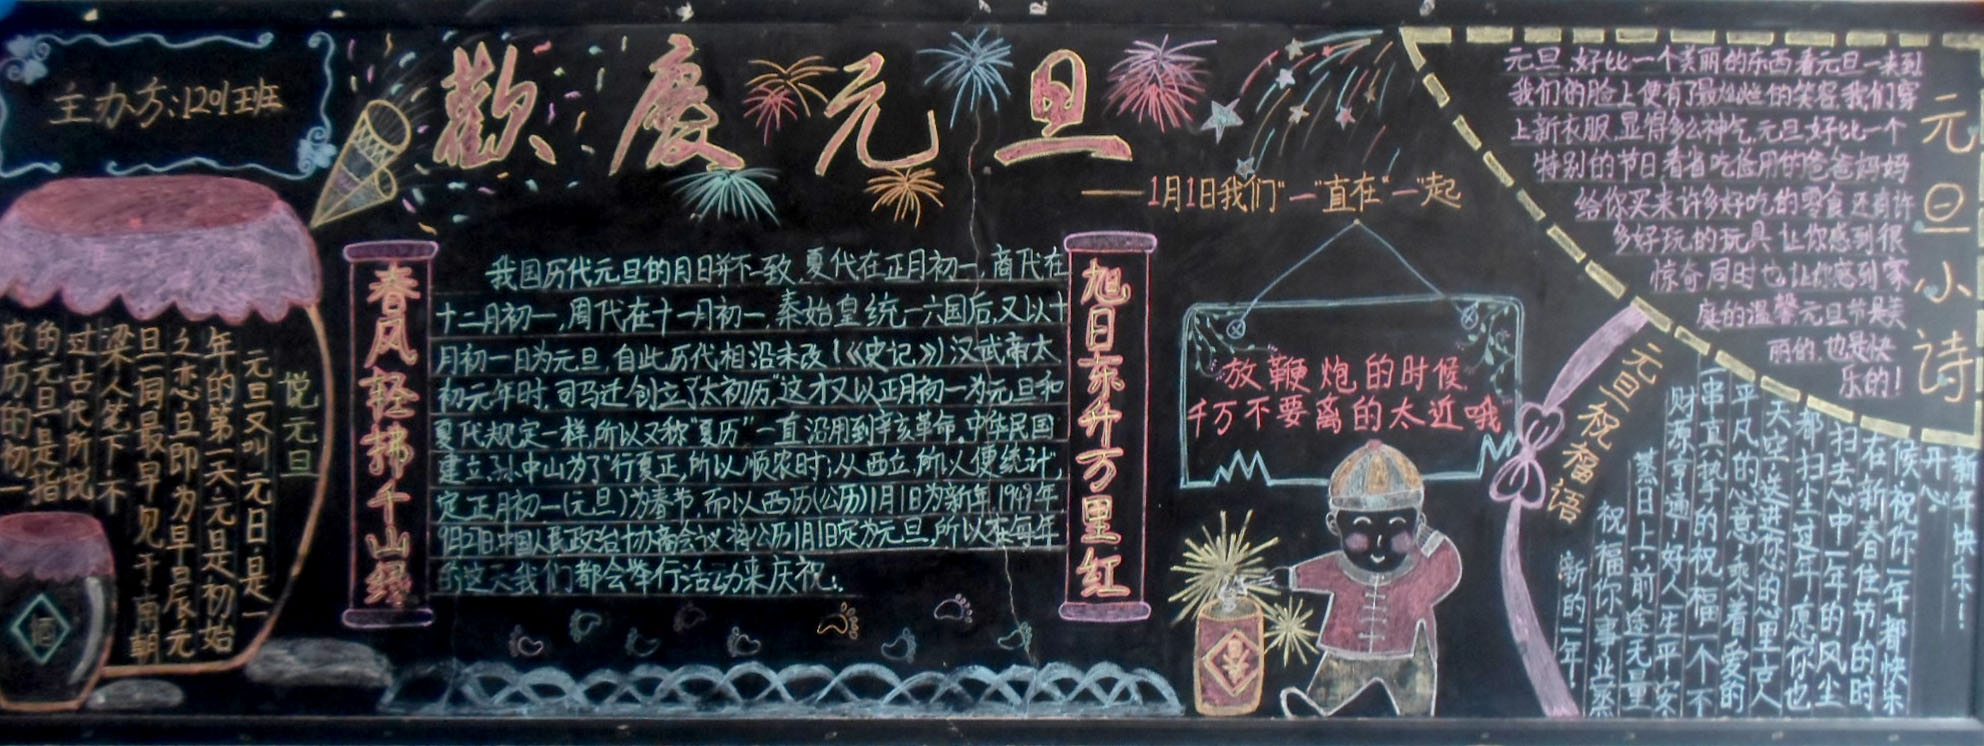 主办方:1201班
歡慶元旦
——1月1日我们"一"直在"一"起
悦元旦
元旦又叫元日·是一
年的第一天·元是初始
之态旦即为早晨元
旦一词最早见于南朝
梁人笔下·不
过古代所悦
的元旦是指
农历的初一
酒
春风轻拂千山绿
我国历代元旦的月日并不一致.夏代在正月初一,商代在
十二月初一,周代在十一月初一,秦始皇统一六国后,又以十
月初一日为元旦,自此历代相沿未改(《史记》)汉武帝太
初元年时,司马迁创立了"太初历"这才又以正月初一为元旦和
夏代规定一样,所以又称"夏历"一直沿用到辛亥革命.中华民国
建立.孙中山为了"行夏正,所以顺农时;从西立,所以便统计",
定正月初一(元旦)为春节,而以西历(公历)1月1日为新年,1949年
9月27日,中国人民政治协商会议将公历1月1日定为元旦,所以在每年
的这天我们都会举行活动来庆祝!
旭日东升万里红
放鞭炮的时候,
千万不要离的太近哦
元旦小诗
元旦,好比一个美丽的东西看元旦一来到
我们的脸上便有了最灿烂的笑容我们穿
上新衣服.显得多么神气.元旦好比一个
特别的节日看省吃俭用的爸爸妈妈
给你买来许多好吃的零食还有许
多好玩的玩具让你感到很
惊奇同时也让你感到家
庭的温馨元旦节是美
丽的.也是快
乐的!
元旦祝福语
新年快乐!
开心
候·祝你一年都快乐
右新春佳节的时
扫去心中一年的风尘
都扫尘这年愿你也
天空·送进你的窗里古人
平凡的心意·乘着爱的
一串真挚的祝福一个不
财源亨通·好人一生平安
蒸日上·前途无量
祝福你事业蒸
新的一年!